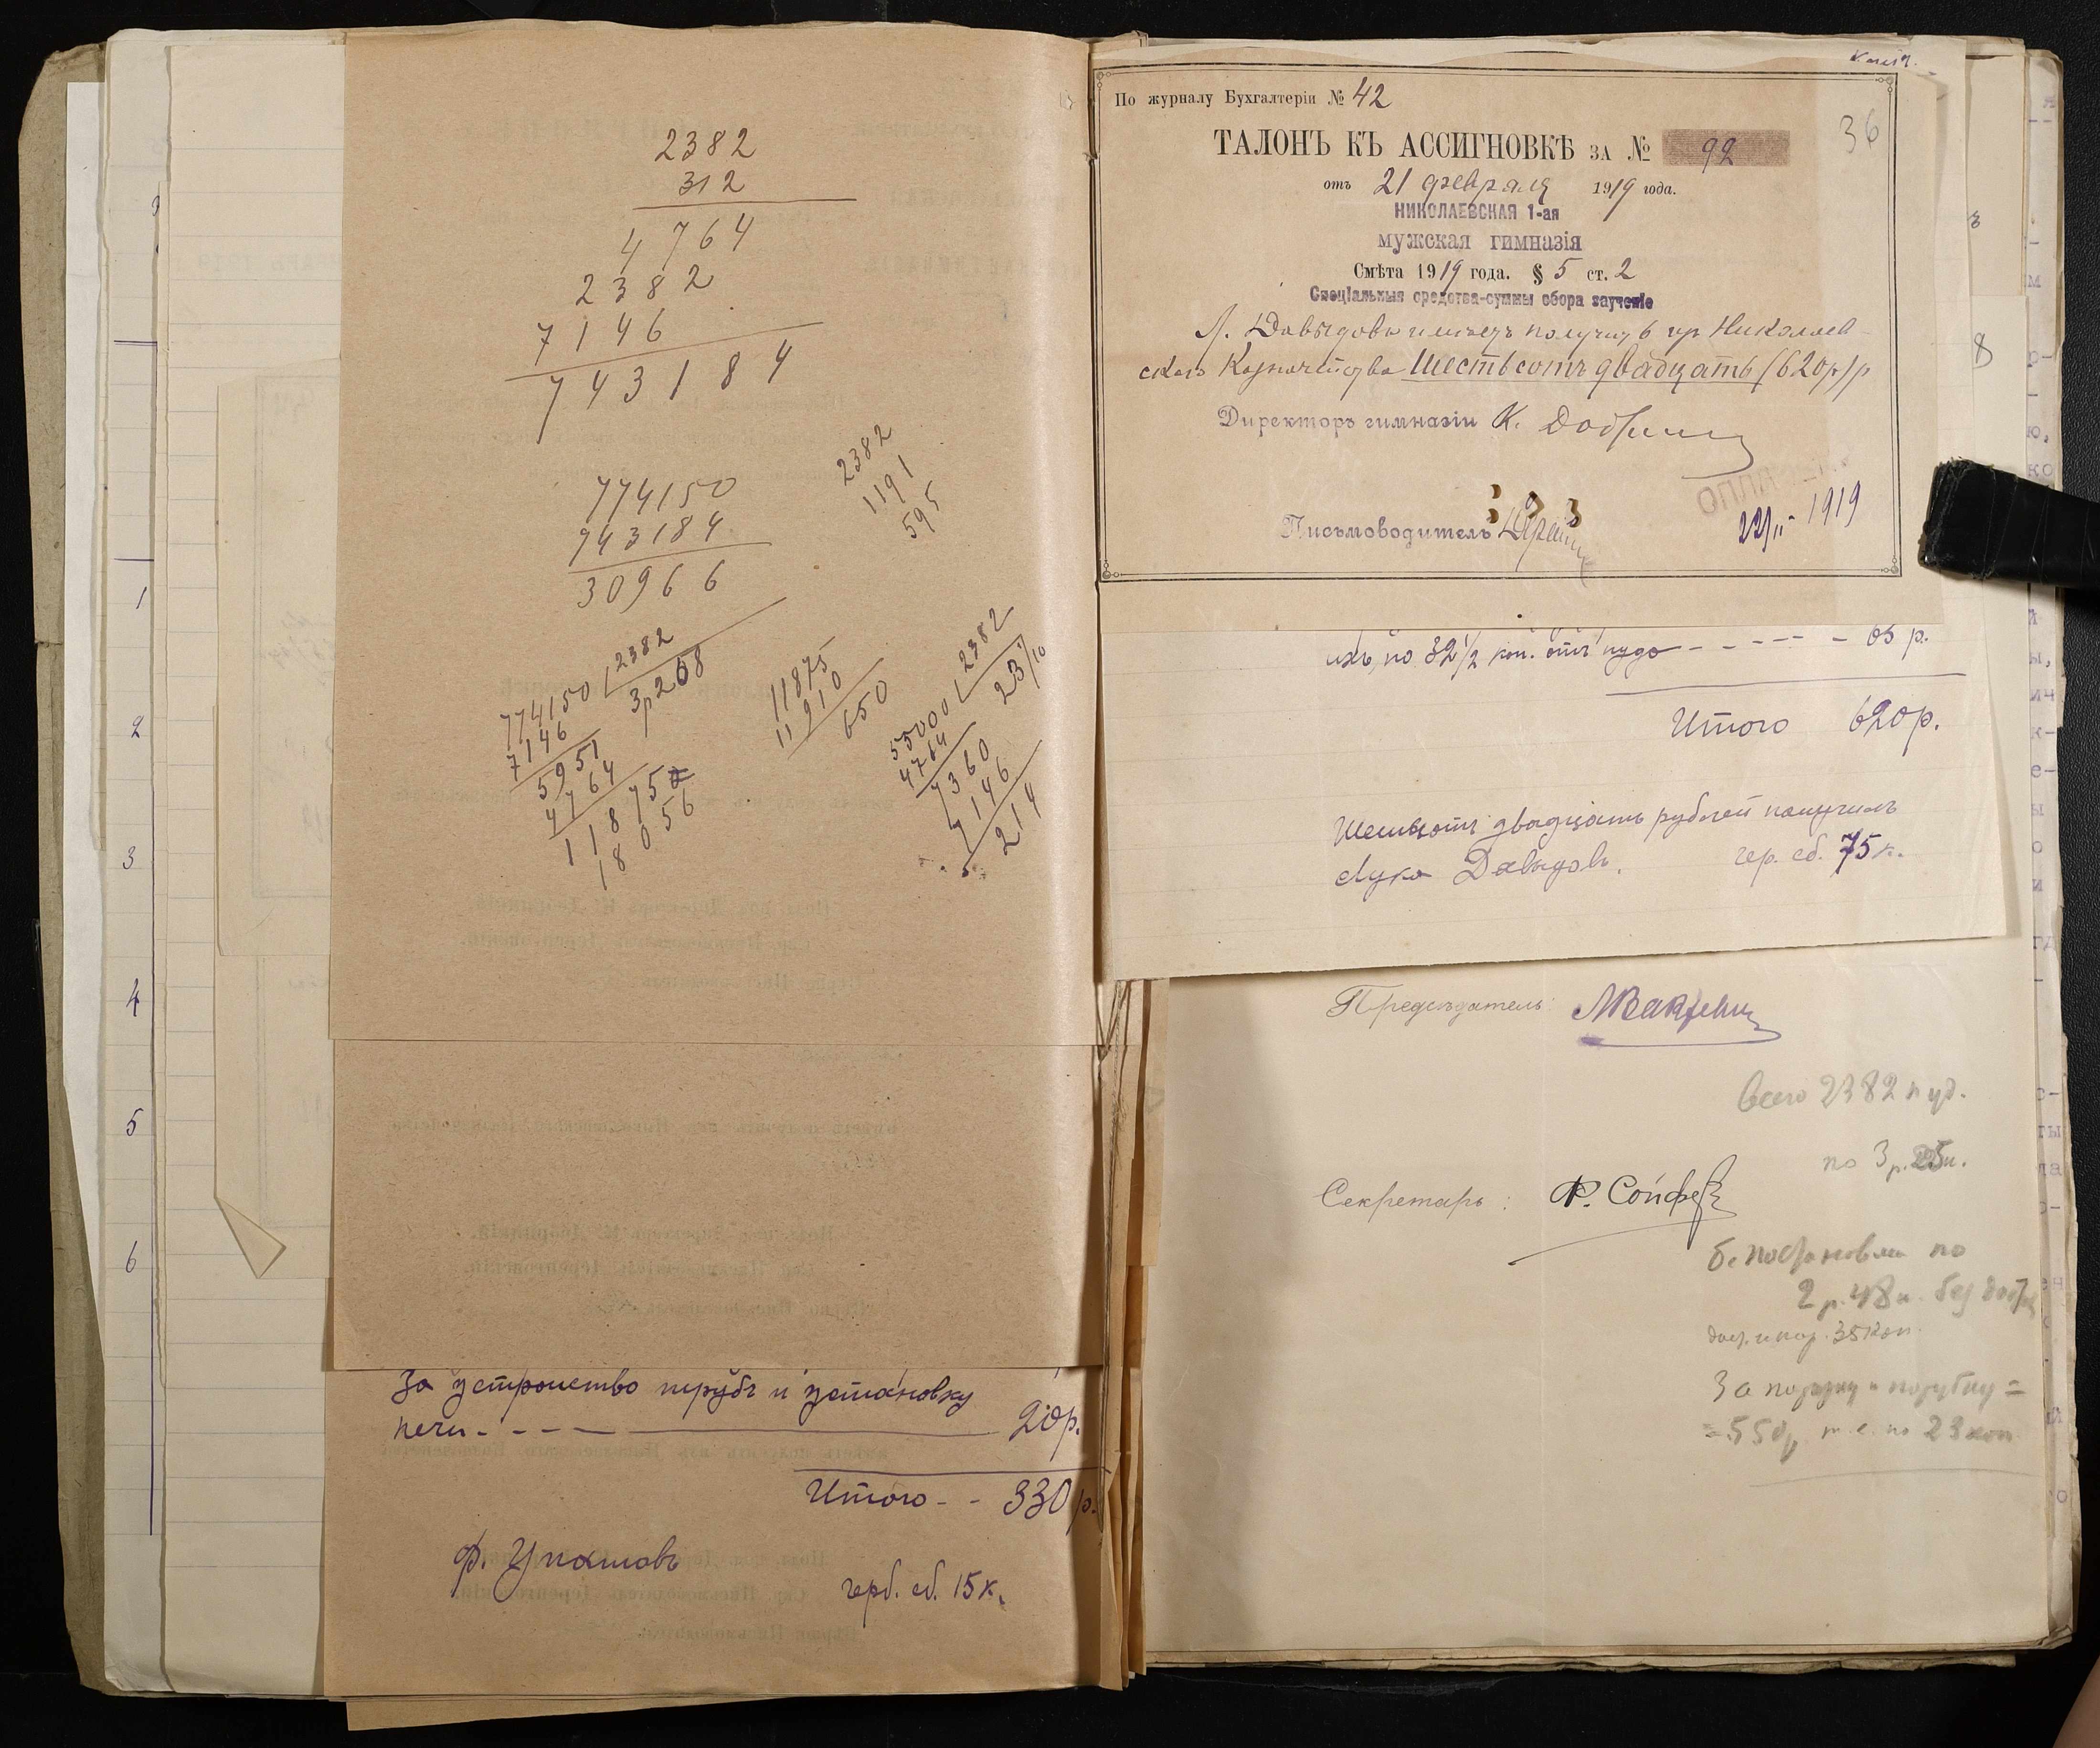 2382
312
4764
2382
7146
743184
774150
743184
30966
2382
1191
595
774150 2382
7146 3р268
5951
4764
11875
18056
11875
11910
650
55000 2382
4764 23 1/10
7360
7146
214
За устройство трубъ и установку
печи - - - - 20р.
Итого - - 330 р.
герб. сб. 15 к.
1
2
3
4
5
6
По журналу Бухгалтеріи № 42
36
ТАЛОНЪ КЪ АССИГНОВКѢ ЗА № 92
отъ 21 февраля 1919 года.
НИКОЛАЕВСКАЯ 1-ая
мужская гимназія
Смѣта 1919 года. § 5 ст. 2
Спеціальныя средства-суммы сбора за ученіе
Л. Давыдовъ имѣетъ получить изъ Николаев-
скаго Казначейства Шестьсотъ двадцать (620р) р
Директоръ гимназіи К.
22/II - 1919
Письмоводитель
ихъ, по 32 1/2 коп. отъ пуда - - - - - 65 р.
Итого 620р.
Шестьсотъ двадцать рублей получилъ
Лука Давыдовъ. гер. сб. 75 к.
Предсѣдатель:
Всего 2382 пуд.
по 3 р. 25к.
Секретарь: Ф.
по
2 р. 48 к. без
35 коп.
За
= 550р т. е. по 23 коп